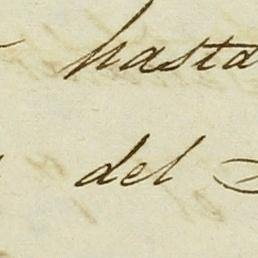 hasta
del